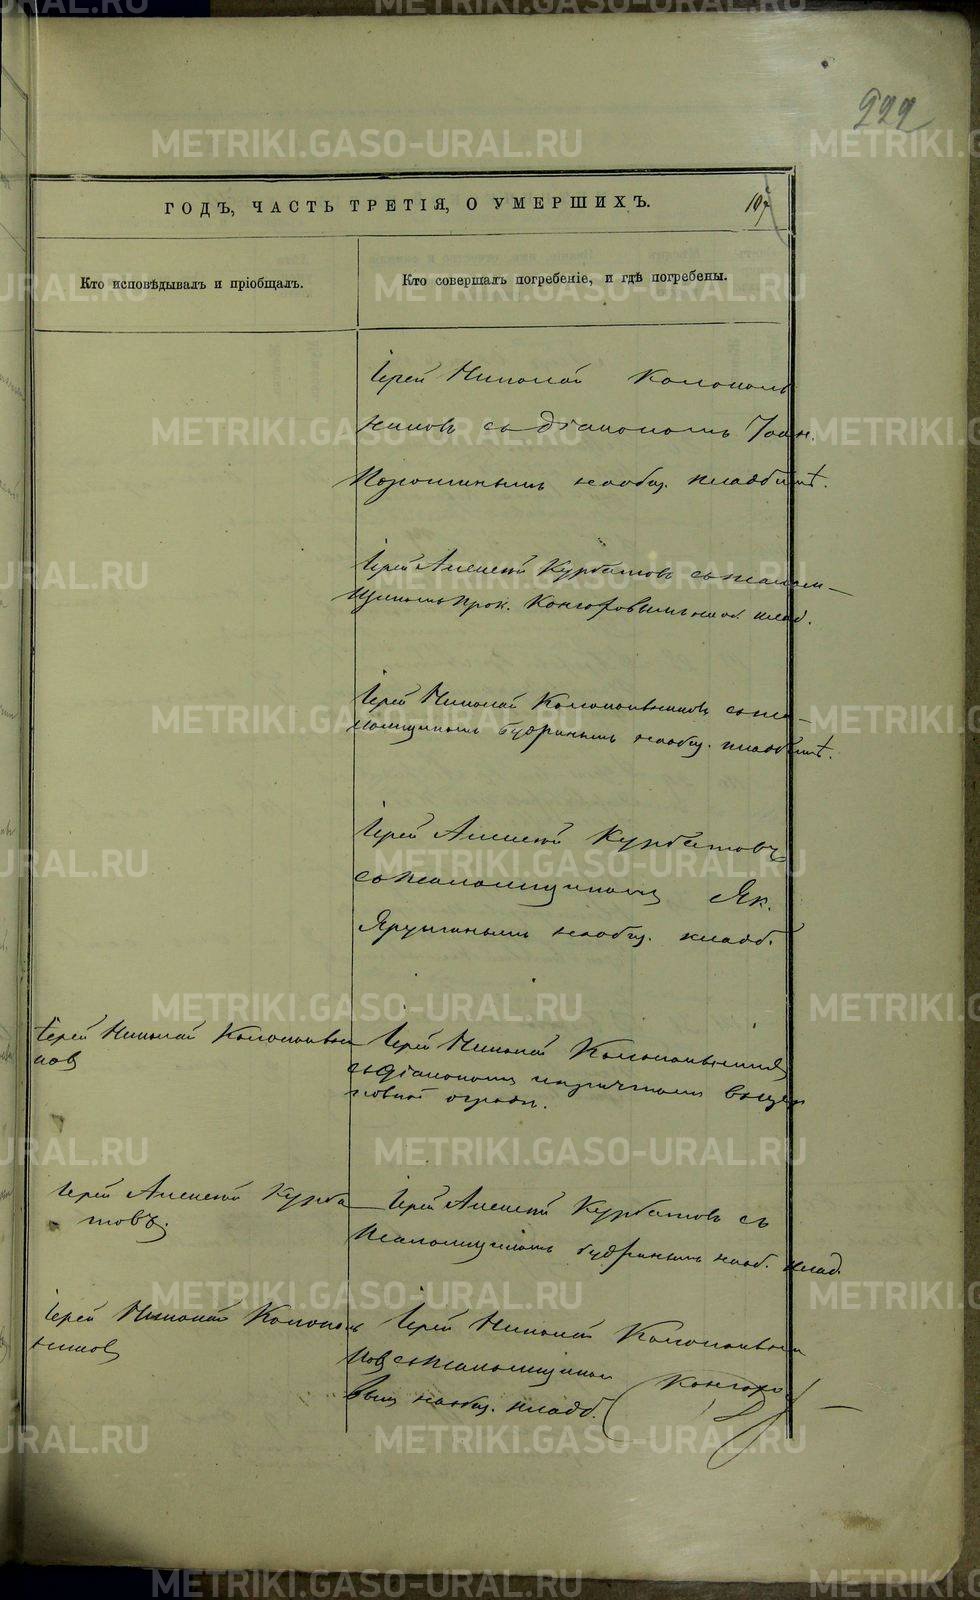 222
ГОДЪ, ЧАСТЬ ТРЕТІЯ, О УМЕРШИХЪ.
107
Кто исповѣдывалъ и пріобщалъ.
Кто совершалъ погребеніе, и гдѣ погребены.
Іерей Николай Колоколь
никовъ съ діакономъ Іоан.
Порошинымъ на общ. кладбищѣ.
Іерей Алексѣй Курбатовъ съ псалом-
щикомъ Прок. Конгоровымъ на об. клад.
Іерей Николай Колокольниковъ съ пса-
ломщикомъ Будринымъ на общ. кладбищѣ.
Іерей Алексѣй Курбатовъ
съ псаломщикомъ Як.
Ярушинымъ на общ. кладб.
Іерей Николай Колокольни
ковъ
Іерей Николай Колокольниковъ
съ діакономъ и причтомъ въ цер
ковной оградѣ.
Іерей Алексѣй Курба
товъ.
Іерей Алексѣй Курбатовъ съ
псаломщикомъ Будринымъ на об. клад.
Іерей Николай Колоколь
никовъ
Іерей Николай Колокольни
ковъ съ псаломщикомъ Конгоро
вым на общ. кладб.
METRIKI.GASO-URAL.RU